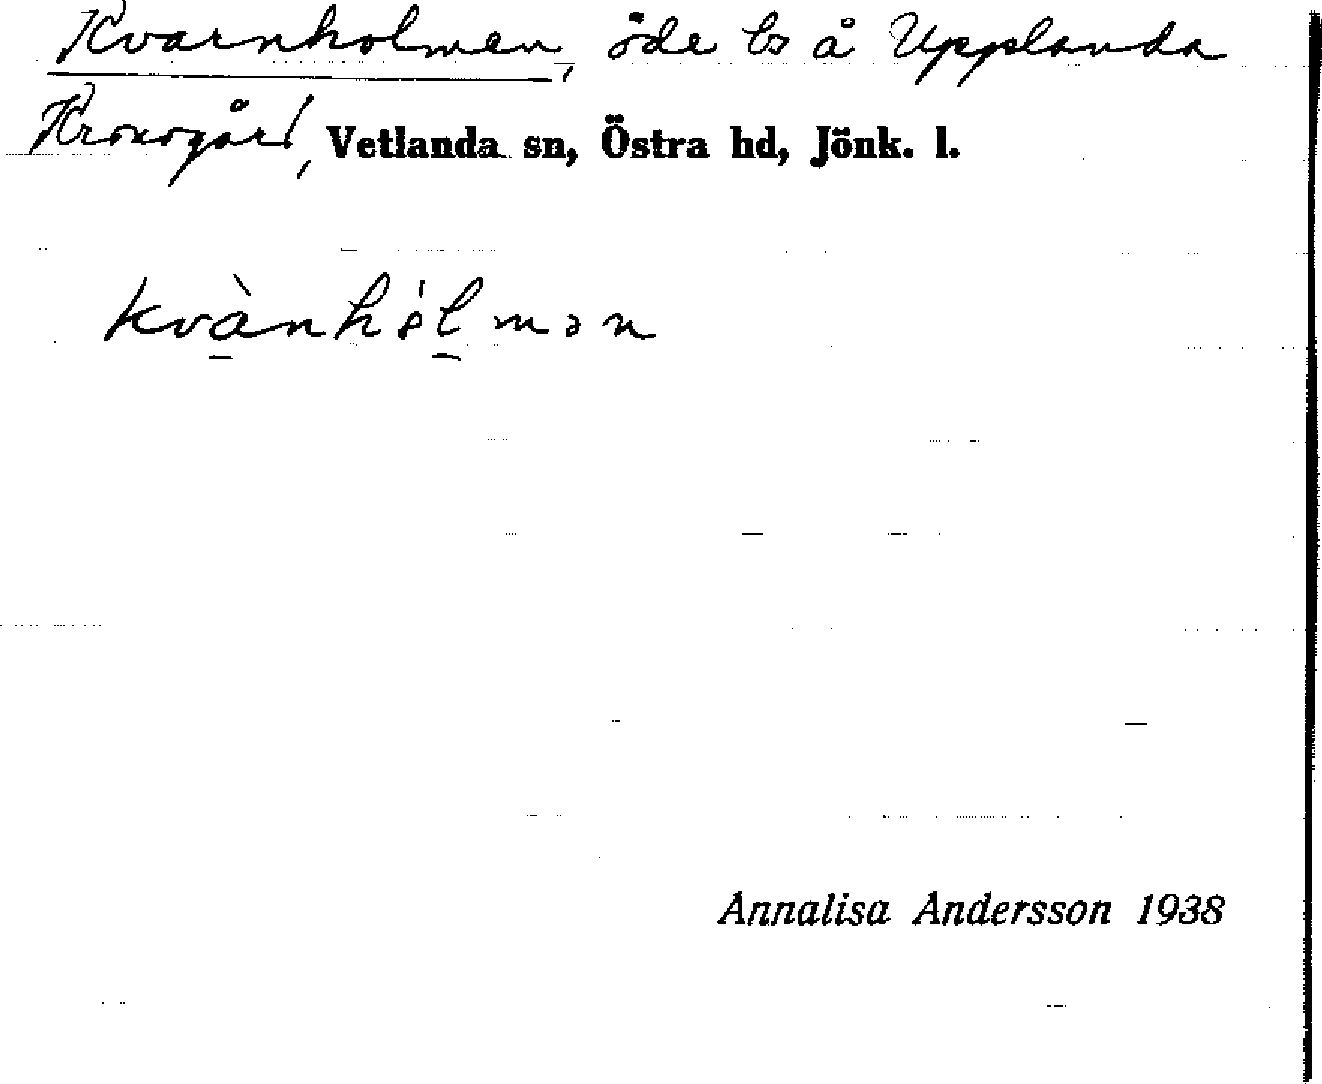 Kvarnholmen, öde bs å Upplanda
Kronogård, Vetlanda sn, Östra hd, Jönk. l.
kvànhólmən
Annalisa Andersson 1938